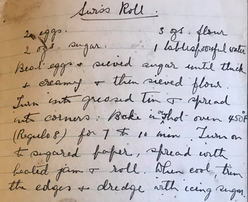 Swiss Roll.
2 eggs. 3 ozs. flour
2 ozs. sugar. 1 tablespoonful water
Beat eggs & sieved sugar until thick
& creamy & then sieved flour.
Turn into greased tin & spread
into corners. Bake in hot oven 450F
(Regulo 8) for 7 to 10 min. Turn on
to sugared paper, spread with
heated jam & roll. When cool, trim
the edges & dredge with icing sugar.